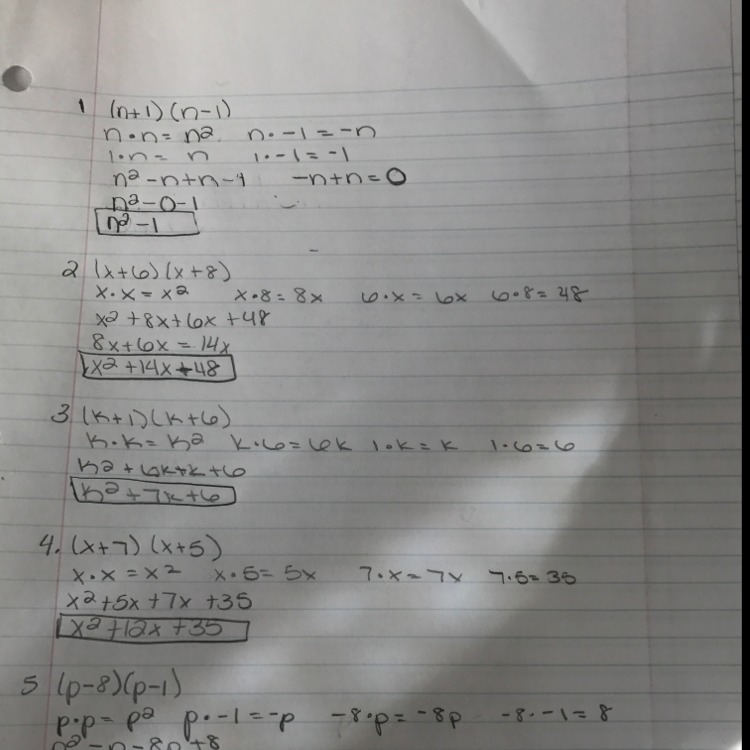 1 (n+1)(n-1)
n·n= n² n·-1=-n
1·n= n 1·-1=-1
n²-n+n-1 -n+n=0
n²-0-1
n²-1
2 (x+6)(x+8)
x·x=x² x·8=8x 6·x=6x 6·8=48
x²+8x+6x+48
8x+6x=14x
x²+14x+48
3 (k+1)(k+6)
k·k=k² k·6=6k 1·k=k 1·6=6
k²+6k+k+6
k²+7k+6
4. (x+7)(x+5)
x·x=x² x·5=5x 7·x=7x 7·5=35
x²+5x+7x+35
x²+12x+35
5 (p-8)(p-1)
p·p=p² p·-1=-p -8·p=-8p -8·-1=8
p²-p-8p+8